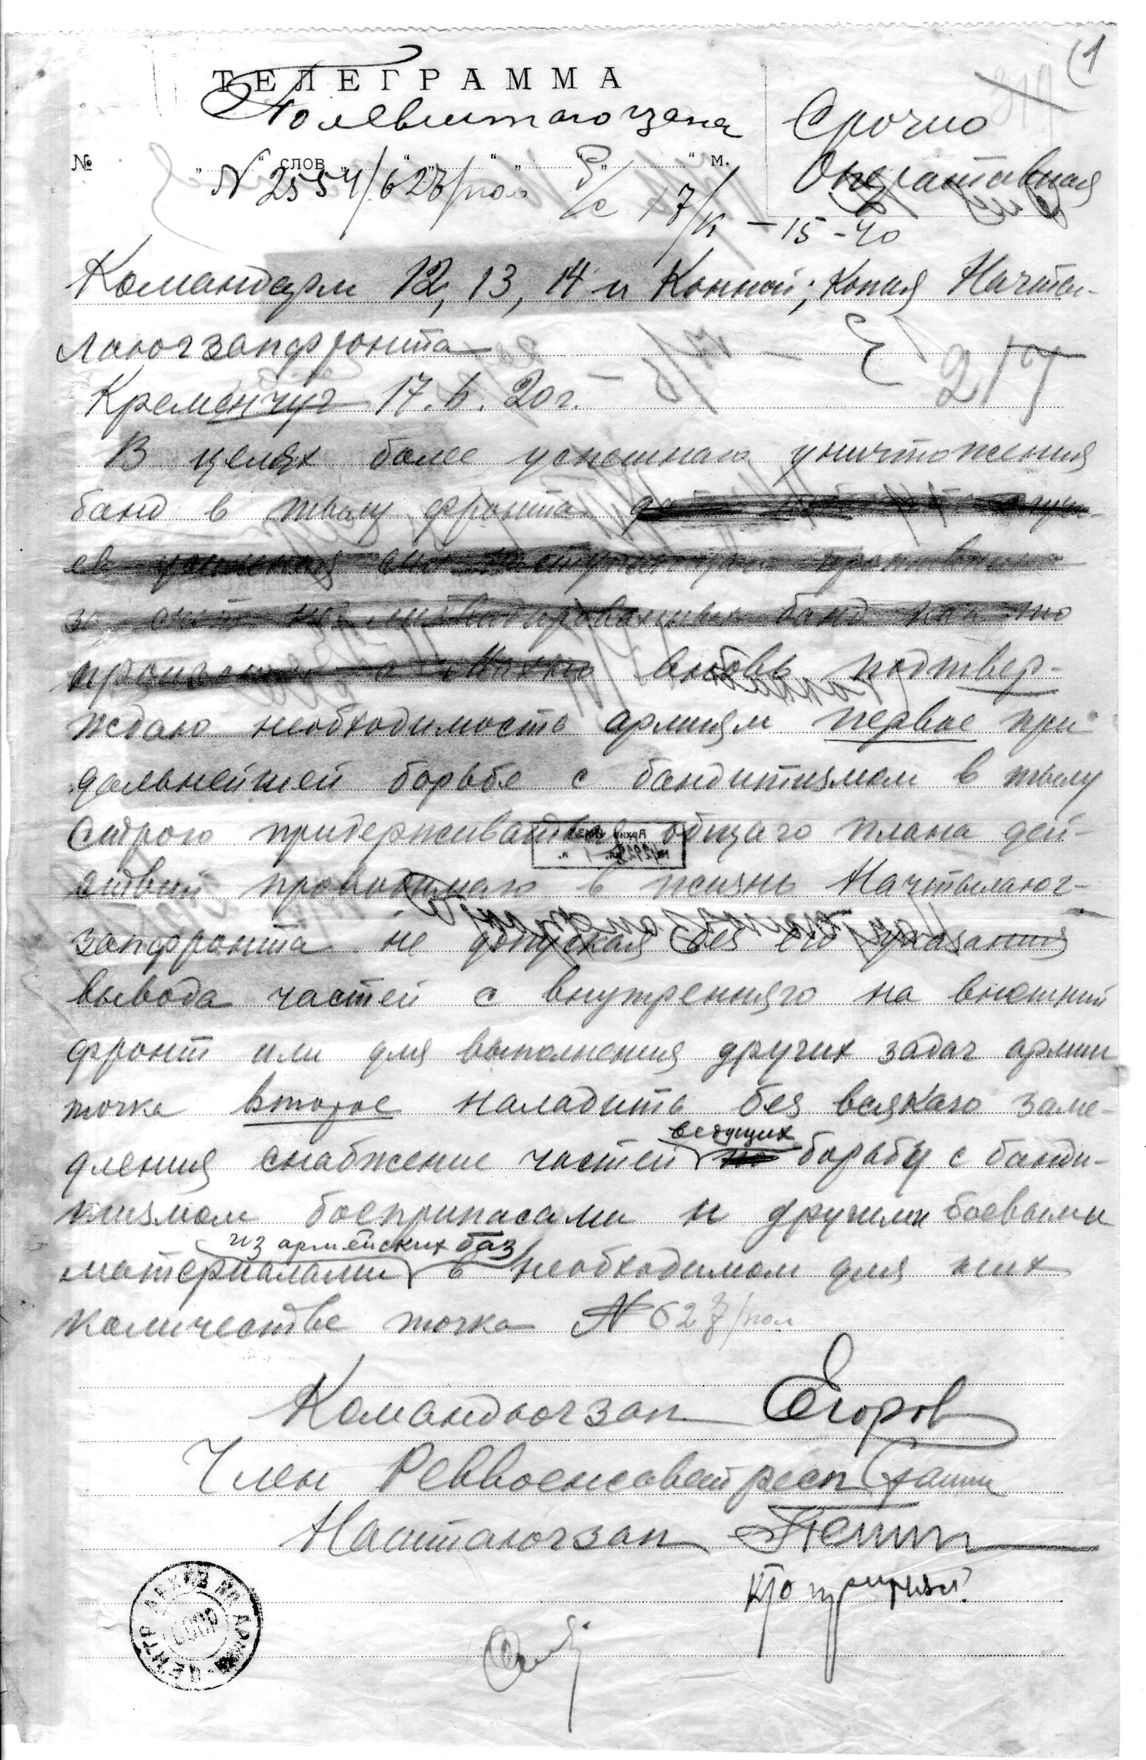 (1
ТЕЛЕГРАММА
Полевштаюгзапа
Срочно
Оперативная
№ слов м.
N 2554/б 627/пол р/с 17/VI – 15 - 40
Командарм 12, 13, 14 и Конной; Копия Начты-
лаюгзапфронта
217
Кременчуг 17.6.20г.
В целях более успешнаго уничтожения
банд в тылу фронта
вновь подтвер-
ждаю необходимость армиям первое при
дальнейшей борьбе с бандитизмом в тылу
строго придерживаться общаго плана дей-
ствий проводимаго в жизнь Начтылаюг-
запфронта не допуская без его указания
вывода частей с внутреннего на внешний
фронт или для выполнения других задач армии
точка второе наладить без всякаго заме-
дления снабжение частей ведущих борьбу с банди-
тизмом боеприпасами и другими боевыми
материалами из армейских баз в необходимом для них
количестве точка N 627/пол
Командюгзап Егоров
Член Реввоенсовета респ Сталин
Наштаюгзап Петин
Кто принял?
ЦЕНТР. АРХИВ КР. АРМИИ
СССР